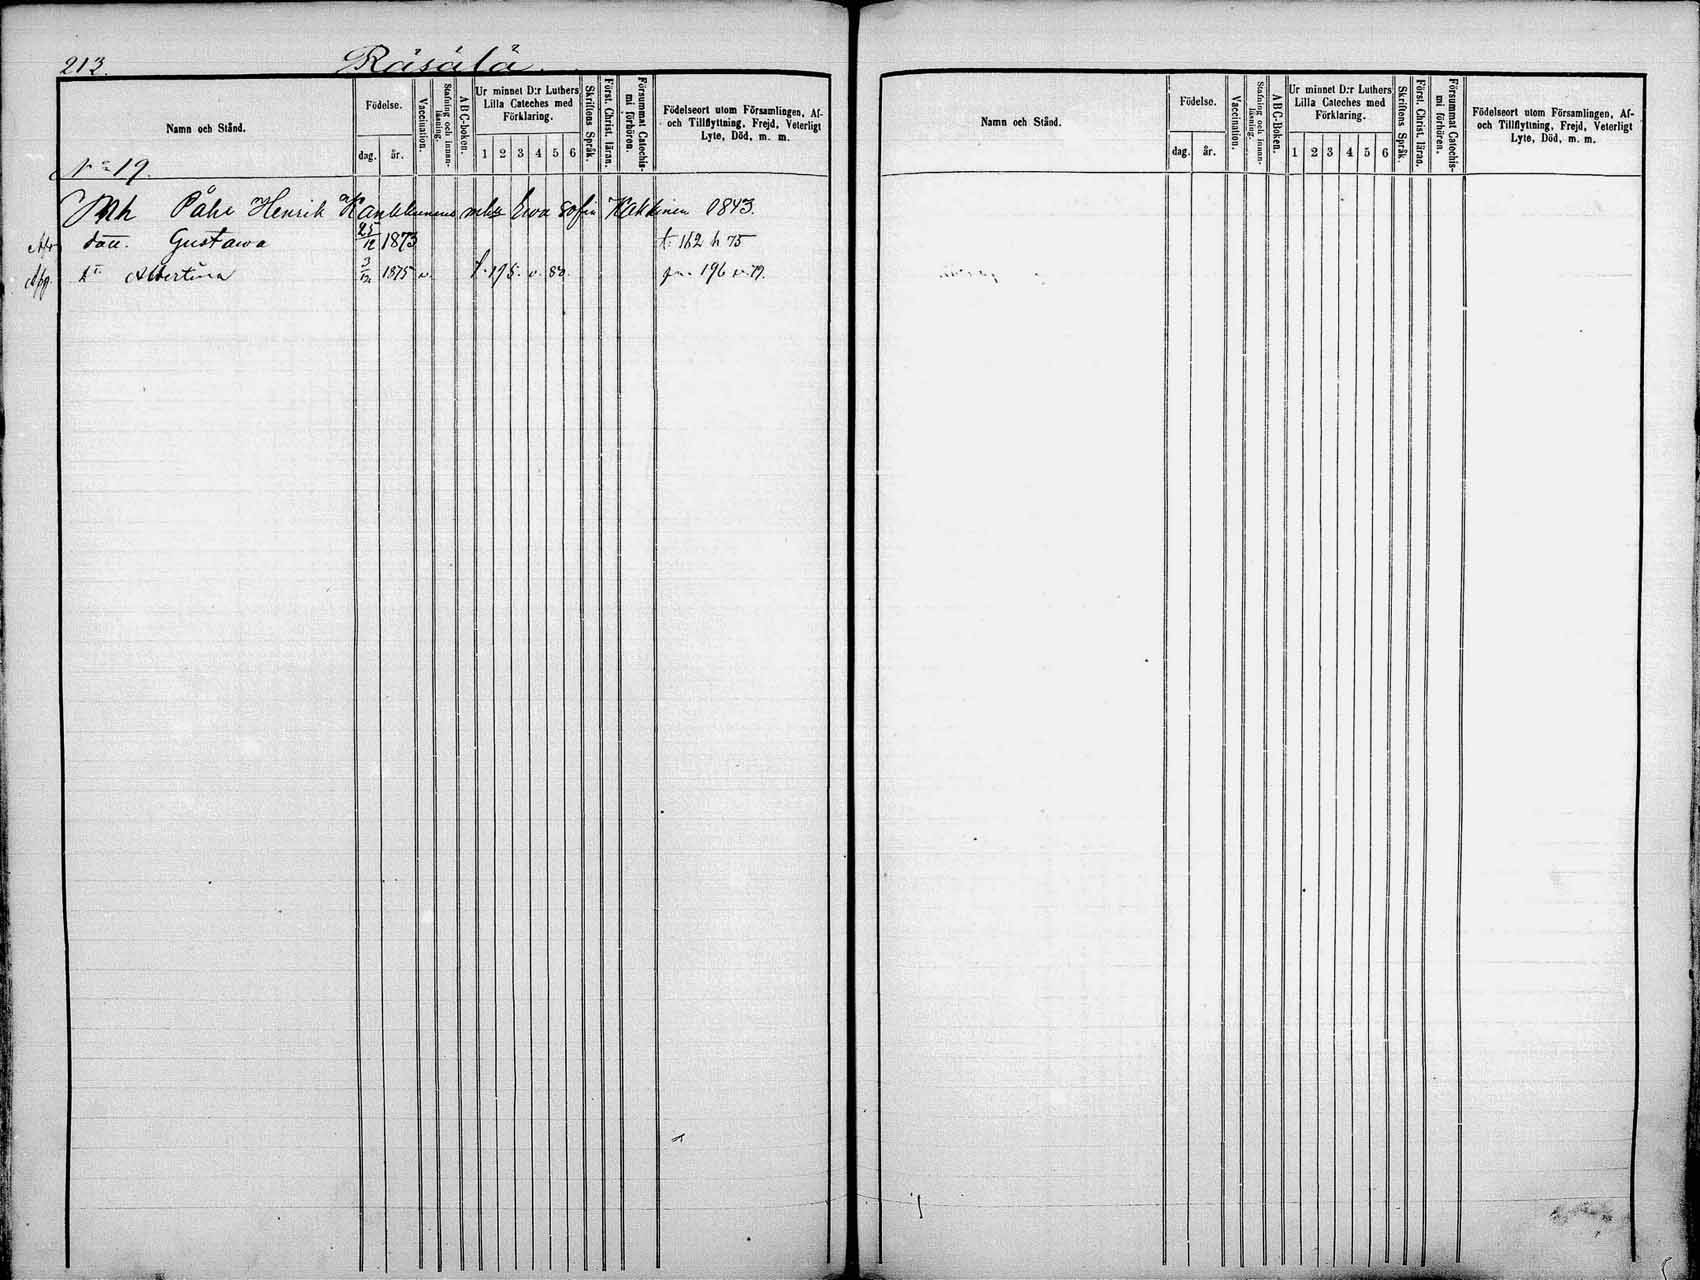 213.
Räsälä.
Namn och Stånd.
Födelse.
dag. år.
Vaccination.
Stafning och innan-läsning.
A B C-boken.
Ur minnet D:r Luthers
Lilla Cateches med
Förklaring.
1 2 3 4 5 6
Skriftens Språk.
Först. Christ. läran.
Försummat Catechis-
mi förhören.
Födelseort utom Församlingen, Af-
och Tillflyttning, Frejd, Veterligt
Lyte, Död, m. m.
N:o 19.
Påhr Henrik Kankkunens Ewa Sofia Hakkinen 1843.
Gustawa 25/12 1873 162 h 75
Albertina 3/12 1875 v. 195. v. 80. 196 v. 79.
Namn och Stånd.
Födelse.
dag. år.
Vaccination.
Stafning och innan-
läsning.
A B C-boken.
Ur minnet D:r Luthers
Lilla Cateches med
Förklaring.
1 2 3 4 5 6
Skriftens Språk.
Först. Christ. läran.
Försummat Catechis-
mi förhören.
Födelseort utom Församlingen, Af-
och Tillflyttning, Frejd, Veterligt
Lyte, Död, m. m.